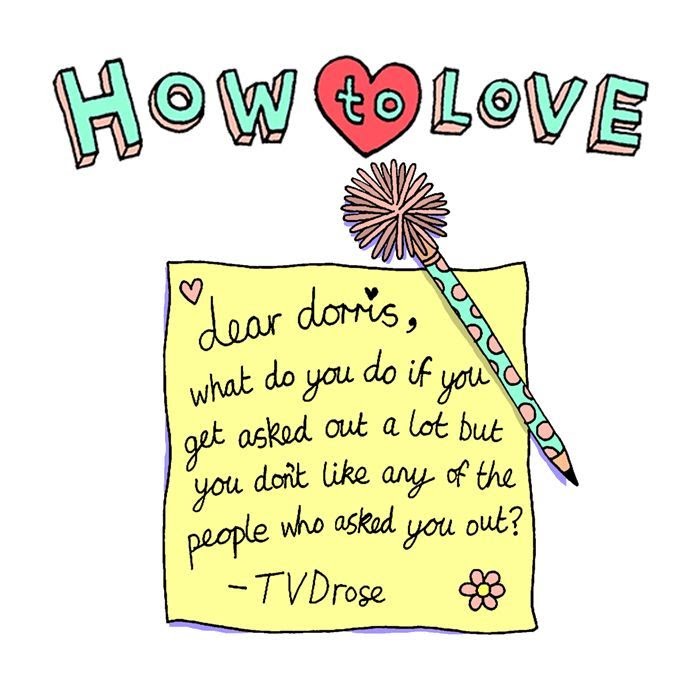 HOW to LOVE
dear dorris,
what do you do if you
get asked out a lot but
you don't like any of the
people who asked you out?
-TVDrose